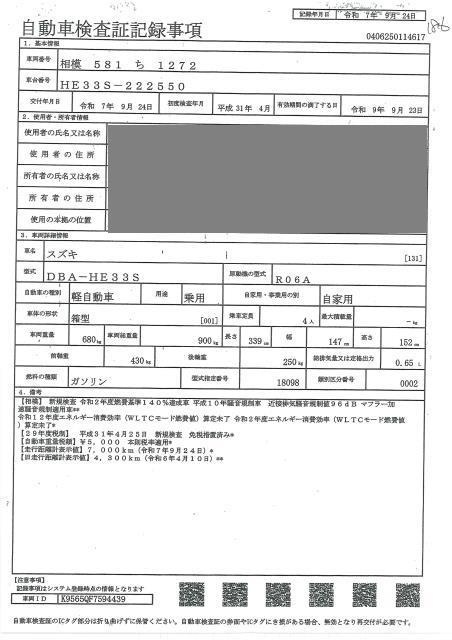 記録年月日 令和 7年 9月 24日
自動車検査証記録事項
0406250114617
1．基本情報
車両番号 相模 581 ち 1272
車台番号 HE33S-222550
交付年月日 令和 7年 9月 24日 初度検査年月 平成 31年 4月 有効期間の満了する日 令和 9年 9月 23日
2．使用者・所有者情報
使用者の氏名又は名称
使用者の住所
所有者の氏名又は名称
所有者の住所
使用の本拠の位置
3．車両詳細情報
車名 スズキ [131]
型式 DBA-HE33S 原動機の型式 R06A
自動車の種別 軽自動車 用途 乗用 自家用・事業用の別 自家用
車体の形状 箱型 [001] 乗車定員 4人 最大積載量 -kg
車両重量 680kg 車両総重量 900kg 長さ 339cm 幅 147cm 高さ 152cm
前軸重 430kg 後軸重 250kg 総排気量又は定格出力 0.65 L
燃料の種類 ガソリン 型式指定番号 18098 類別区分番号 0002
4．備考
【相模】 新規検査 令和２年度燃費基準１４０％達成車 平成１０年騒音規制車 近接排気騒音規制値９６ｄＢ マフラー加
速騒音規制適用車**
令和１２年度エネルギー消費効率（ＷＬＴＣモード燃費値）算定未了 令和２年度エネルギー消費効率（ＷＬＴＣモード燃費値
）算定未了*
【２９年度税制】 平成３１年４月２５日 新規検査 免税措置済み*
【自動車重量税額】￥５，０００ 本則税率適用*
【走行距離計表示値】７，０００ｋｍ（令和７年９月２４日）*
【旧走行距離計表示値】４，３００ｋｍ（令和６年４月１０日）**
【注意事項】
記録事項はシステム登録時点の情報となります
車両ＩＤ K9565QF7594439
自動車検査証のICタグ部分は折り曲げずに保管ください。自動車検査証の券面やICタグにき損がある場合、無効となり再交付が必要です。